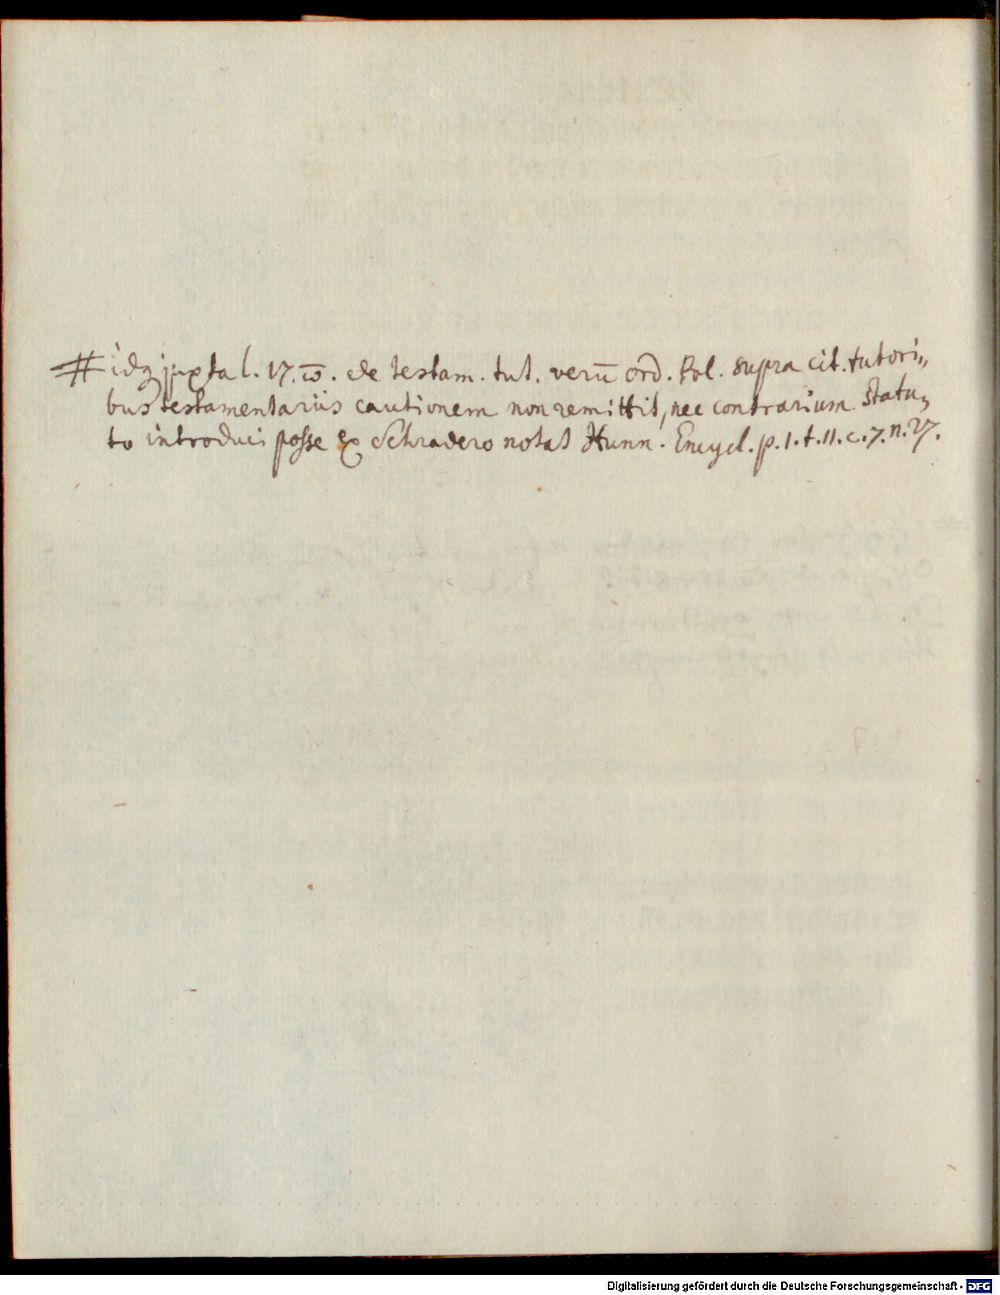 # idq juxta l. 17. ω. de testam. tut. verū ord. Pol. supra cit. tutori„
bus testamentariis cautionem non remittit, nec contrarium Statu„
to introduci posse ex Schradero notat Hunn. Encycl. p. 1. t. 11. c. 7. n. 27.
Digitalisierung gefördert durch die Deutsche Forschungsgemeinschaft - DFG